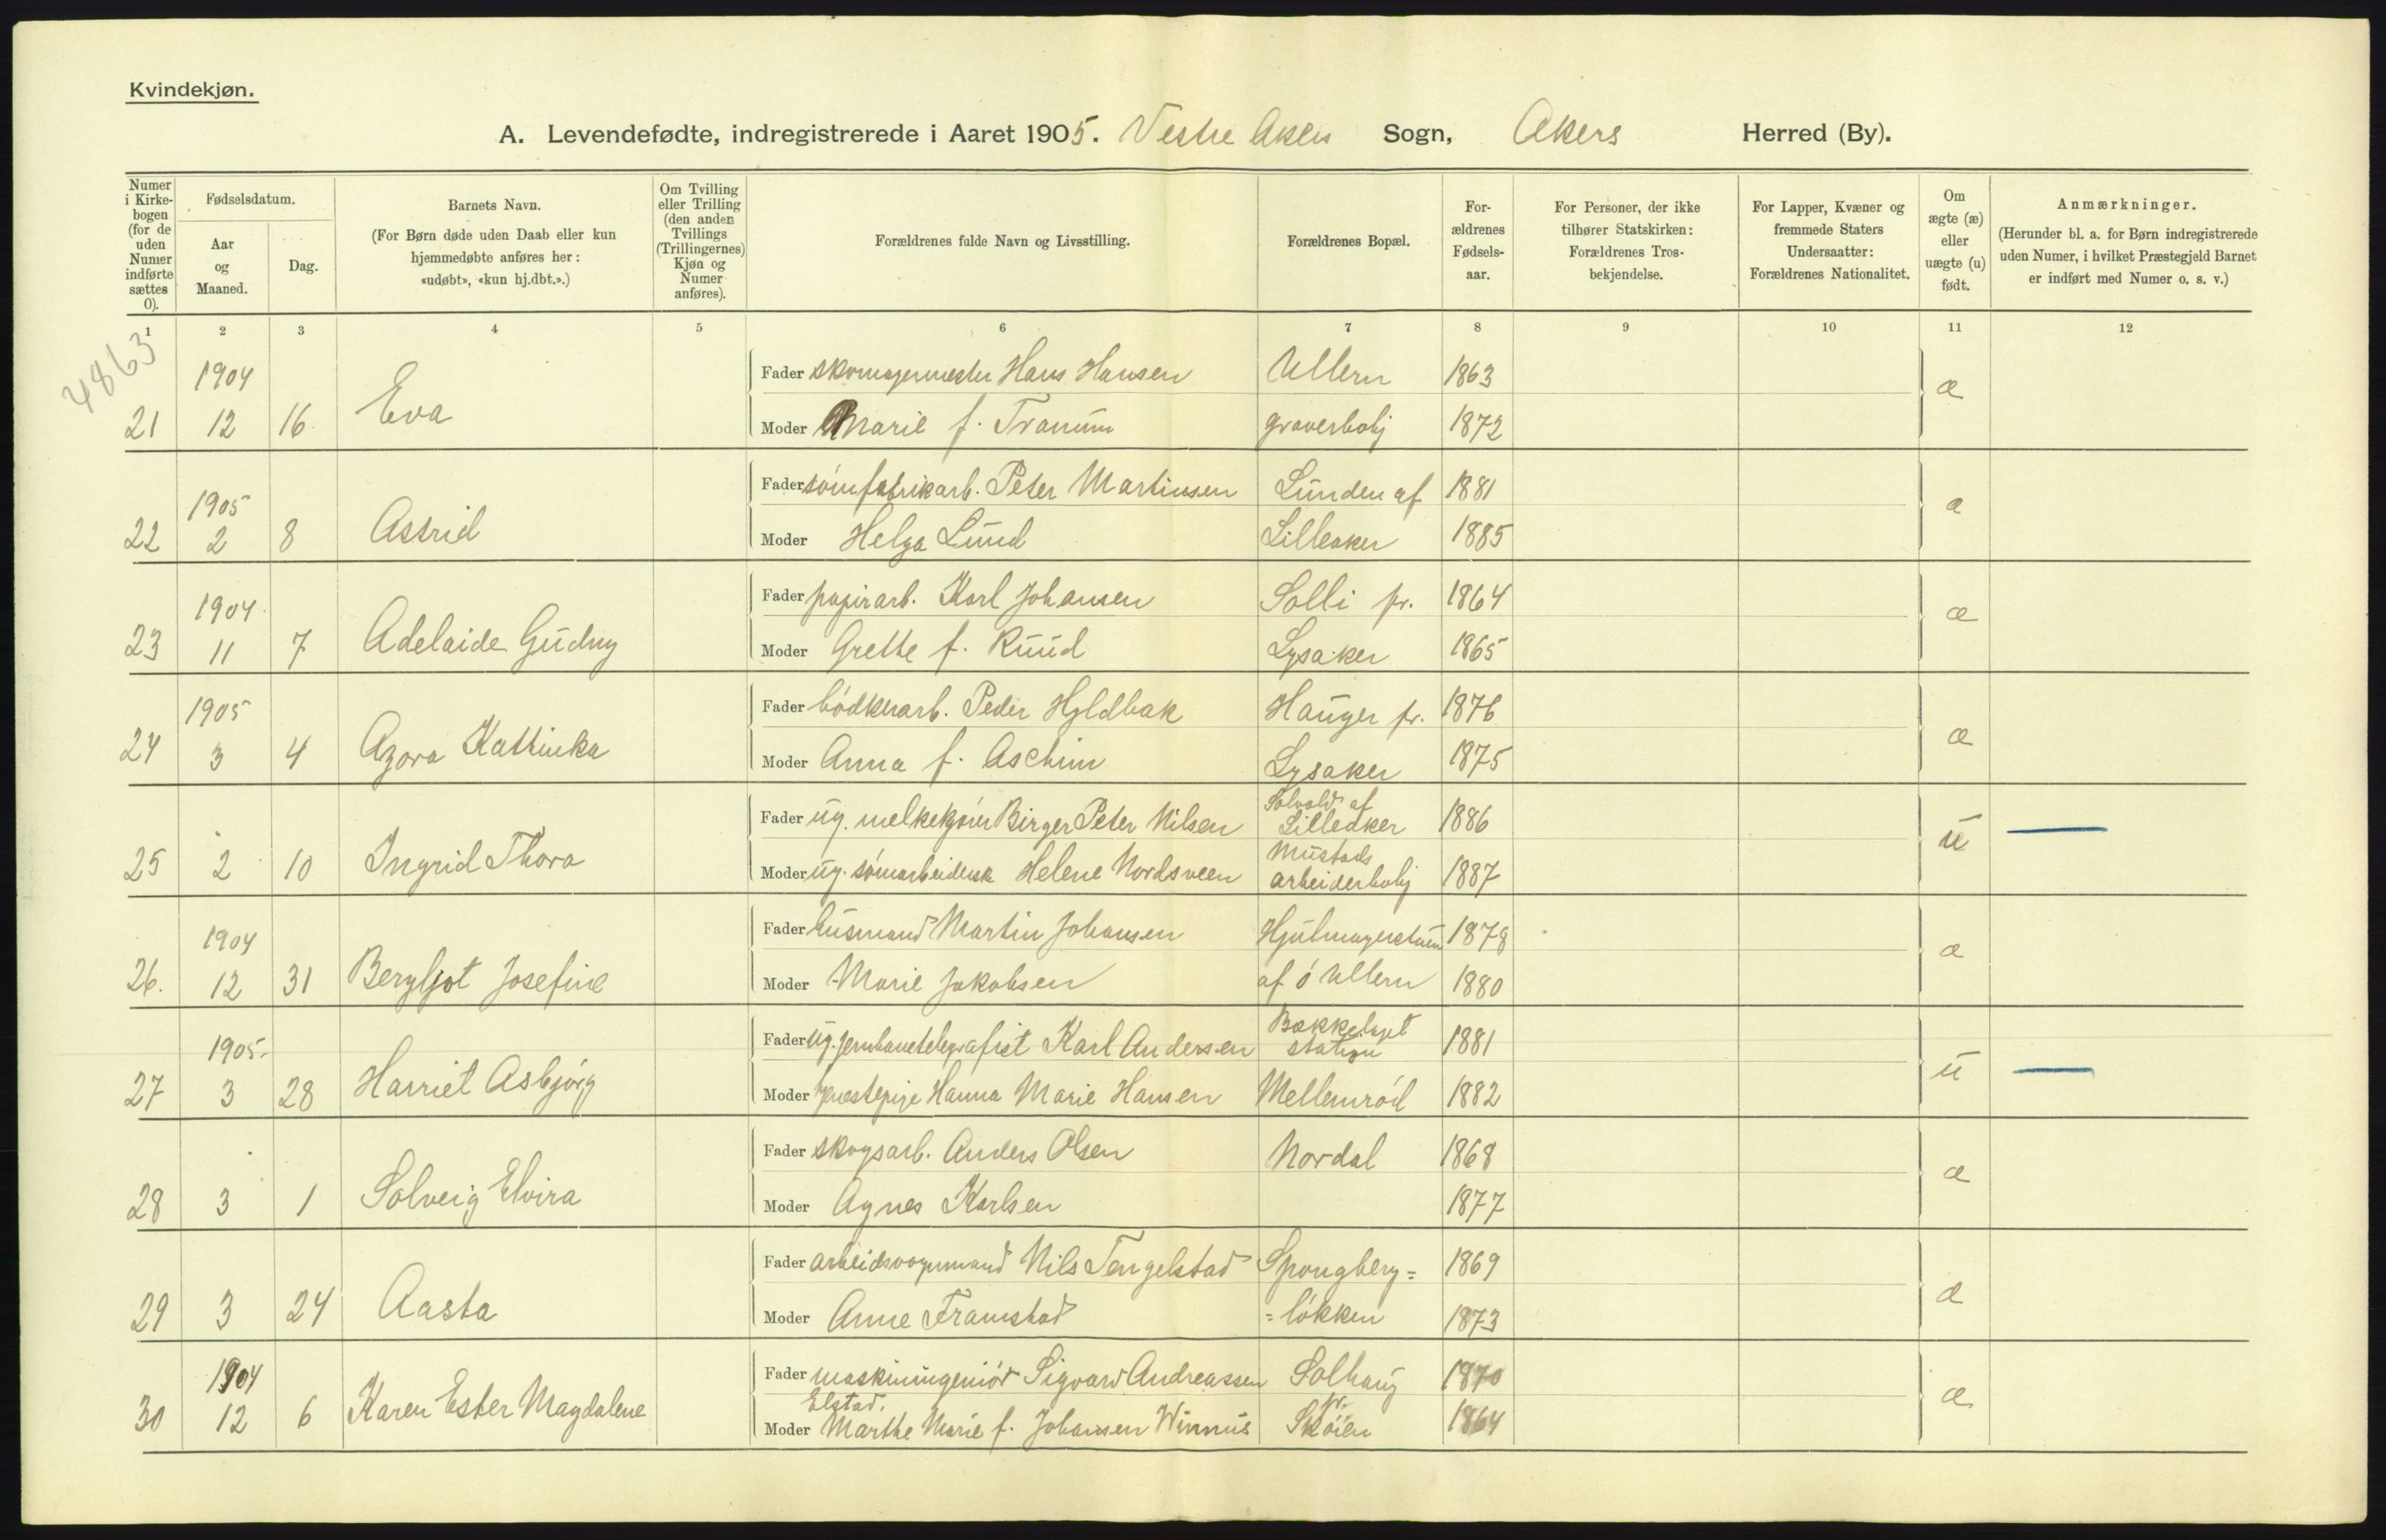 Kvindekjøn.
A. Levendefødte, indregistrerede i Aaret 1905. Vestre Akers Sogn, Akers Herred (By).
Numer i Kirkebogen (for de uden Numer indførte sættes 0).
Fødselsdatum.
Aar og Maaned.
Dag.
Barnets Navn.
(For Børn døde uden Daab eller kun hjemmedøbte anføres her: «udøbt», «kun hj.dbt.».)
Om Tvilling eller Trilling (den anden Tvillings (Trillingernes) Kjøn og Numer anføres).
Forældrenes fulde Navn og Livsstilling.
Forældrenes Bopæl.
Forældrenes Fødselsaar.
For Personer, der ikke tilhører Statskirken: Forældrenes Trosbekjendelse.
For Lapper, Kvæner og fremmede Staters Undersaatter: Forældrenes Nationalitet.
Om ægte (æ) eller uægte (u) født.
Anmærkninger.
(Herunder bl. a. for Børn indregistrerede uden Numer, i hvilket Præstegjeld Barnet er indført med Numer o. s. v.)
1 2 3 4 5 6 7 8 9 10 11 12
4863
1904 Fader skomagermester Hans Hansen Ullern 1863 æ
21 12 16 Eva Moder Marie f. Tranum graverbolig 1872
1905 Fader sømfabrikarb. Peter Martinsen Lunden af 1881 æ
22 2 8 Astrid Moder Helga Lund Lilleaker 1885
1904 Fader papirarb. Karl Johansen Solli pr. 1864 æ
23 11 7 Adelaide Gudny Moder Grethe f. Ruud Lysaker 1865
1905 Fader bødkerarb. Peder Hyldbak Hauger pr. 1876 æ
24 3 4 Azora Kathinka Moder Anna f. Aschim Lysaker 1875
Fader ug. melkekjører Birger Peter Nilsen Solvold af Lilleaker 1886 u
25 2 10 Ingrid Thora Moder ug. sømarbeiderske Helene Nordsveen Mustads arbeiderbolig 1887
1904 Fader husmand Martin Johansen Hjulmagerstuen 1878 æ
26. 12 31 Bergljot Josefine Moder Marie Jakobsen af ø Ullern 1880
1905 Fader ug. jernbanetelegrafist Karl Andersen Bækkelaget station 1881 u
27 3 28 Harriet Asbjørg Moder tjenestepige Hanna Marie Hansen Mellemrød 1882
Fader skogsarb. Anders Olsen Nordal 1868 æ
28 3 1 Solveig Elvira Moder Agnes Karlsen 1877
Fader arbeidsvognmand Nils Tengelstad Spongberg= 1869 æ
29 3 24 Aasta Moder Anne Framstad =løkken 1873
1904 Fader maskiningeniør Sigvard Andreassen Solhaug 1870 æ
Elstad. pr.
30 12 6 Karen Ester Magdalene Moder Marthe Marie f. Johansen Skøien 1864